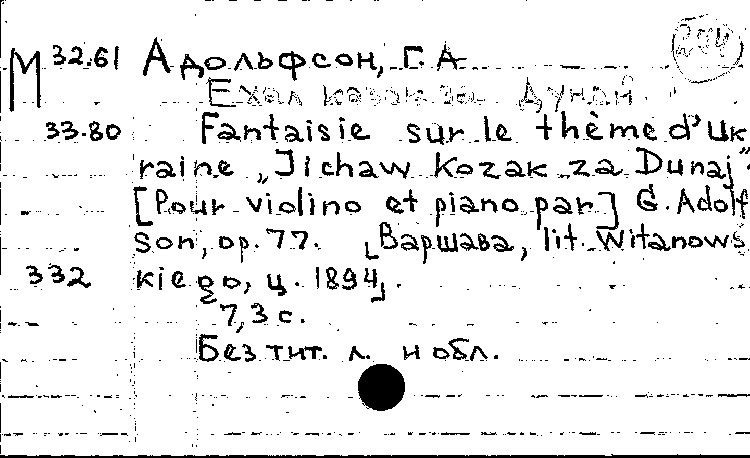 М 32.61 Адольфсон, Г. А.
Ехал казак за Дунай.
33.80 Fantaisie sur le thème d'Uk
raine „Jichaw Kozak za Dunaj".
[Pour violino et piano par] G. Adolf
son, op. 77. [Варшава, lit. Witanows
332 kiego, ц. 1894].
7, 3 с.
Без тит. л. и обл.